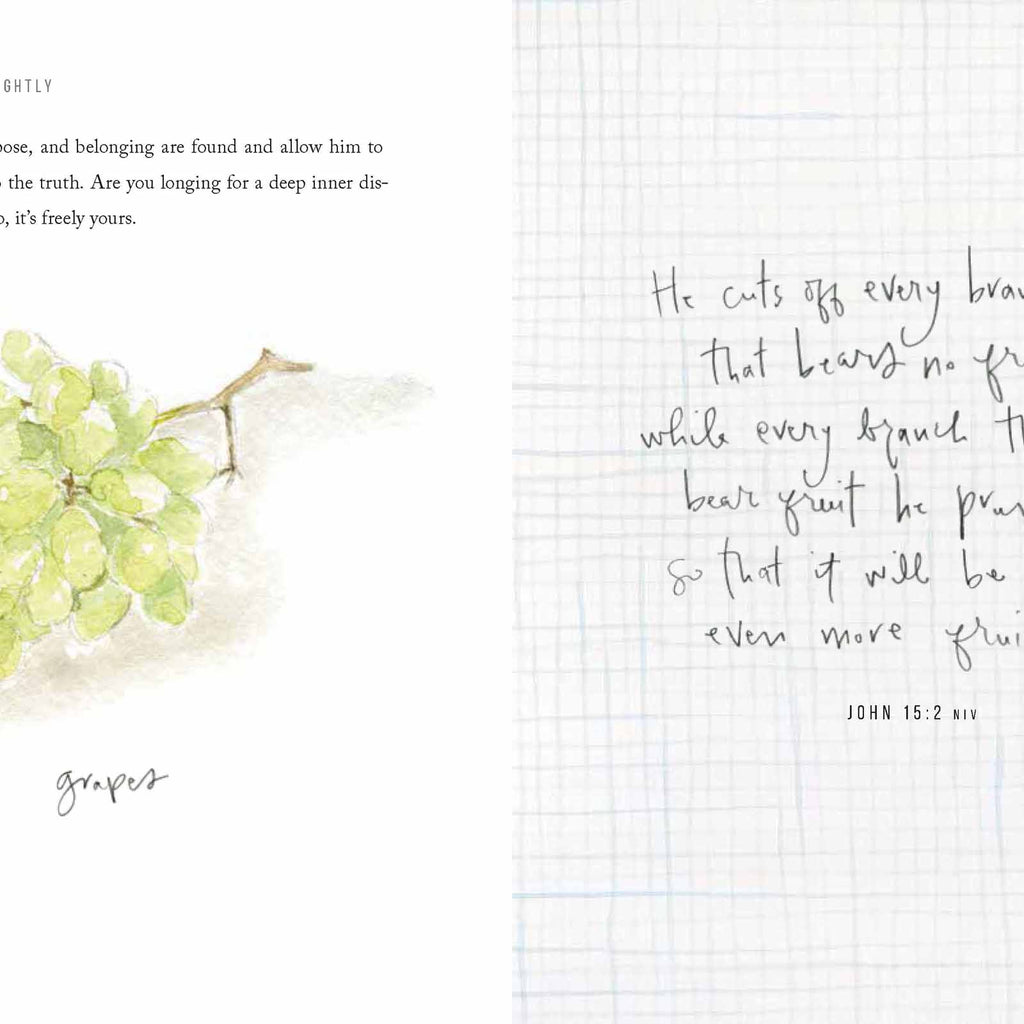 GHTLY
pose, and belonging are found and allow him to
the truth. Are you longing for a deep inner dis-
it's freely yours.
grapes
He cuts off every
that bears no
while every branch
bear fruit he
so that it will be
even more
JOHN 15:2 NIV